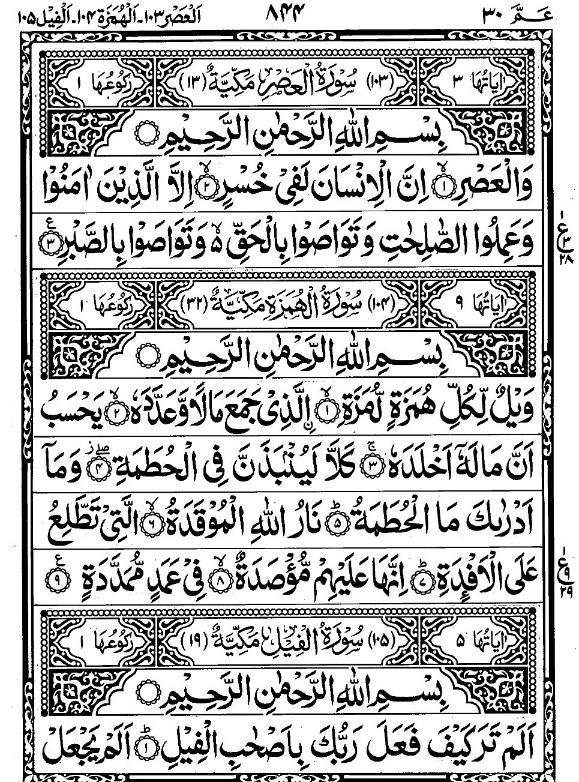 عـمّ ٣٠ ٨٤٤ العصر ١٠٣۔ الهمزة ١٠٤۔ الفيل ١٠٥
اٰيَاتُهَا ٣ (١٠٣) سُوْرَةُ الْعَصْرِ مَكِّيَّةٌ (١٣) رُكُوْعُهَا ١
بِسْمِ اللّٰهِ الرَّحْمٰنِ الرَّحِيْمِ
وَالْعَصْرِ ١ اِنَّ الْاِنْسَانَ لَفِيْ خُسْرٍ ٢ اِلَّا الَّذِيْنَ اٰمَنُوْا
وَعَمِلُوا الصّٰلِحٰتِ وَتَوَاصَوْا بِالْحَقِّ ۙ وَتَوَاصَوْا بِالصَّبْرِ ٣
ع ٣ ٢٨
اٰيَاتُهَا ٩ (١٠٤) سُوْرَةُ الْهُمَزَةِ مَكِّيَّةٌ (٣٢) رُكُوْعُهَا ١
بِسْمِ اللّٰهِ الرَّحْمٰنِ الرَّحِيْمِ
وَيْلٌ لِّكُلِّ هُمَزَةٍ لُّمَزَةِ ١ ۨالَّذِيْ جَمَعَ مَالًا وَّعَدَّدَهٗ ٢ يَحْسَبُ
اَنَّ مَالَهٗٓ اَخْلَدَهٗ ٣ كَلَّا لَيُنْۢبَذَنَّ فِي الْحُطَمَةِ ٤ وَمَآ
اَدْرٰىكَ مَا الْحُطَمَةُ ٥ نَارُ اللّٰهِ الْمُوْقَدَةُ ٦ الَّتِيْ تَطَّلِعُ
عَلَى الْاَفْـِٕدَةِ ٧ اِنَّهَا عَلَيْهِمْ مُّؤْصَدَةٌ ٨ فِيْ عَمَدٍ مُّمَدَّدَةٍ ٩
ع ٩ ٢٩
اٰيَاتُهَا ٥ (١٠٥) سُوْرَةُ الْفِيْلِ مَكِّيَّةٌ (١٩) رُكُوْعُهَا ١
بِسْمِ اللّٰهِ الرَّحْمٰنِ الرَّحِيْمِ
اَلَمْ تَرَ كَيْفَ فَعَلَ رَبُّكَ بِاَصْحٰبِ الْفِيْلِ ١ اَلَمْ يَجْعَلْ